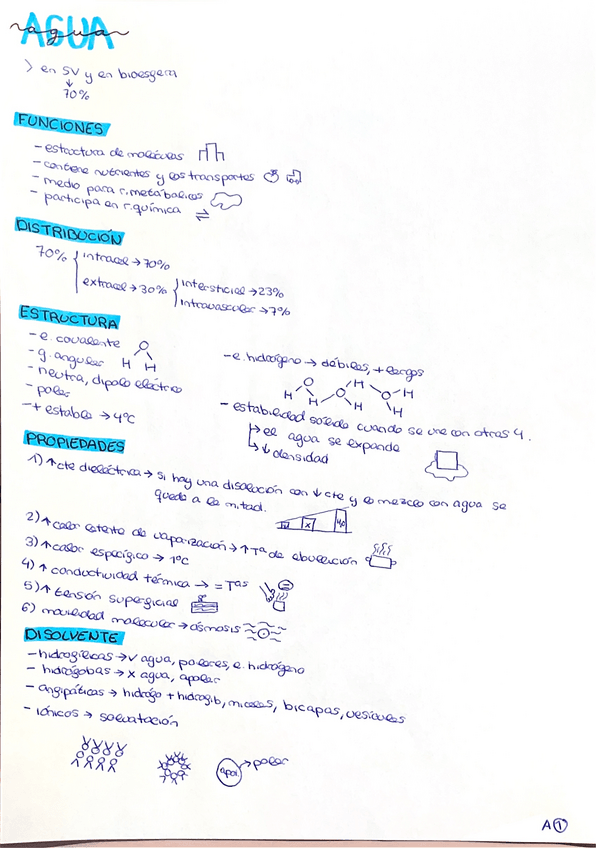 AGUA
agua
> en SV y en bioesfera
70%
FUNCIONES
- estructura de moléculas
- contiene nutrientes y los transportes
- medio para r. metabólicas
- participa en r. química ⇌
DISTRIBUCIÓN
70% { intracel → 70%
extracel → 30% { intersticial → 23%
intravascular → 7%
ESTRUCTURA
- e. covalente
- g. angular
- neutra, dipolo eléctrico
- polar
- + estable → 4ºC
O
H H
- e. hidrógeno → débiles, + largos
O H O H
H H O H
H
- estabilidad sólido cuando se une con otras 4.
↳ el agua se expande
↳ ↓ densidad
PROPIEDADES
1) ↑ cte dieléctrica → si hay una disolución con ↓ cte y lo mezclo con agua se
queda a la mitad.
2) ↑ calor latente de vaporización → ↑ Tª de ebullición
3) ↑ calor específico → 1ºC
4) ↑ conductividad térmica → = Tªs
5) ↑ tensión superficial
6) movilidad molecular → ósmosis
DISOLVENTE
- hidrofílicas → ✓ agua, polares, e. hidrógeno
- hidrófobas → x agua, apolar
- anfipáticas → hidrófo + hidrofib, micelas, bicapas, vesículas
- iónicos → solvatación
apol → polar
A ①